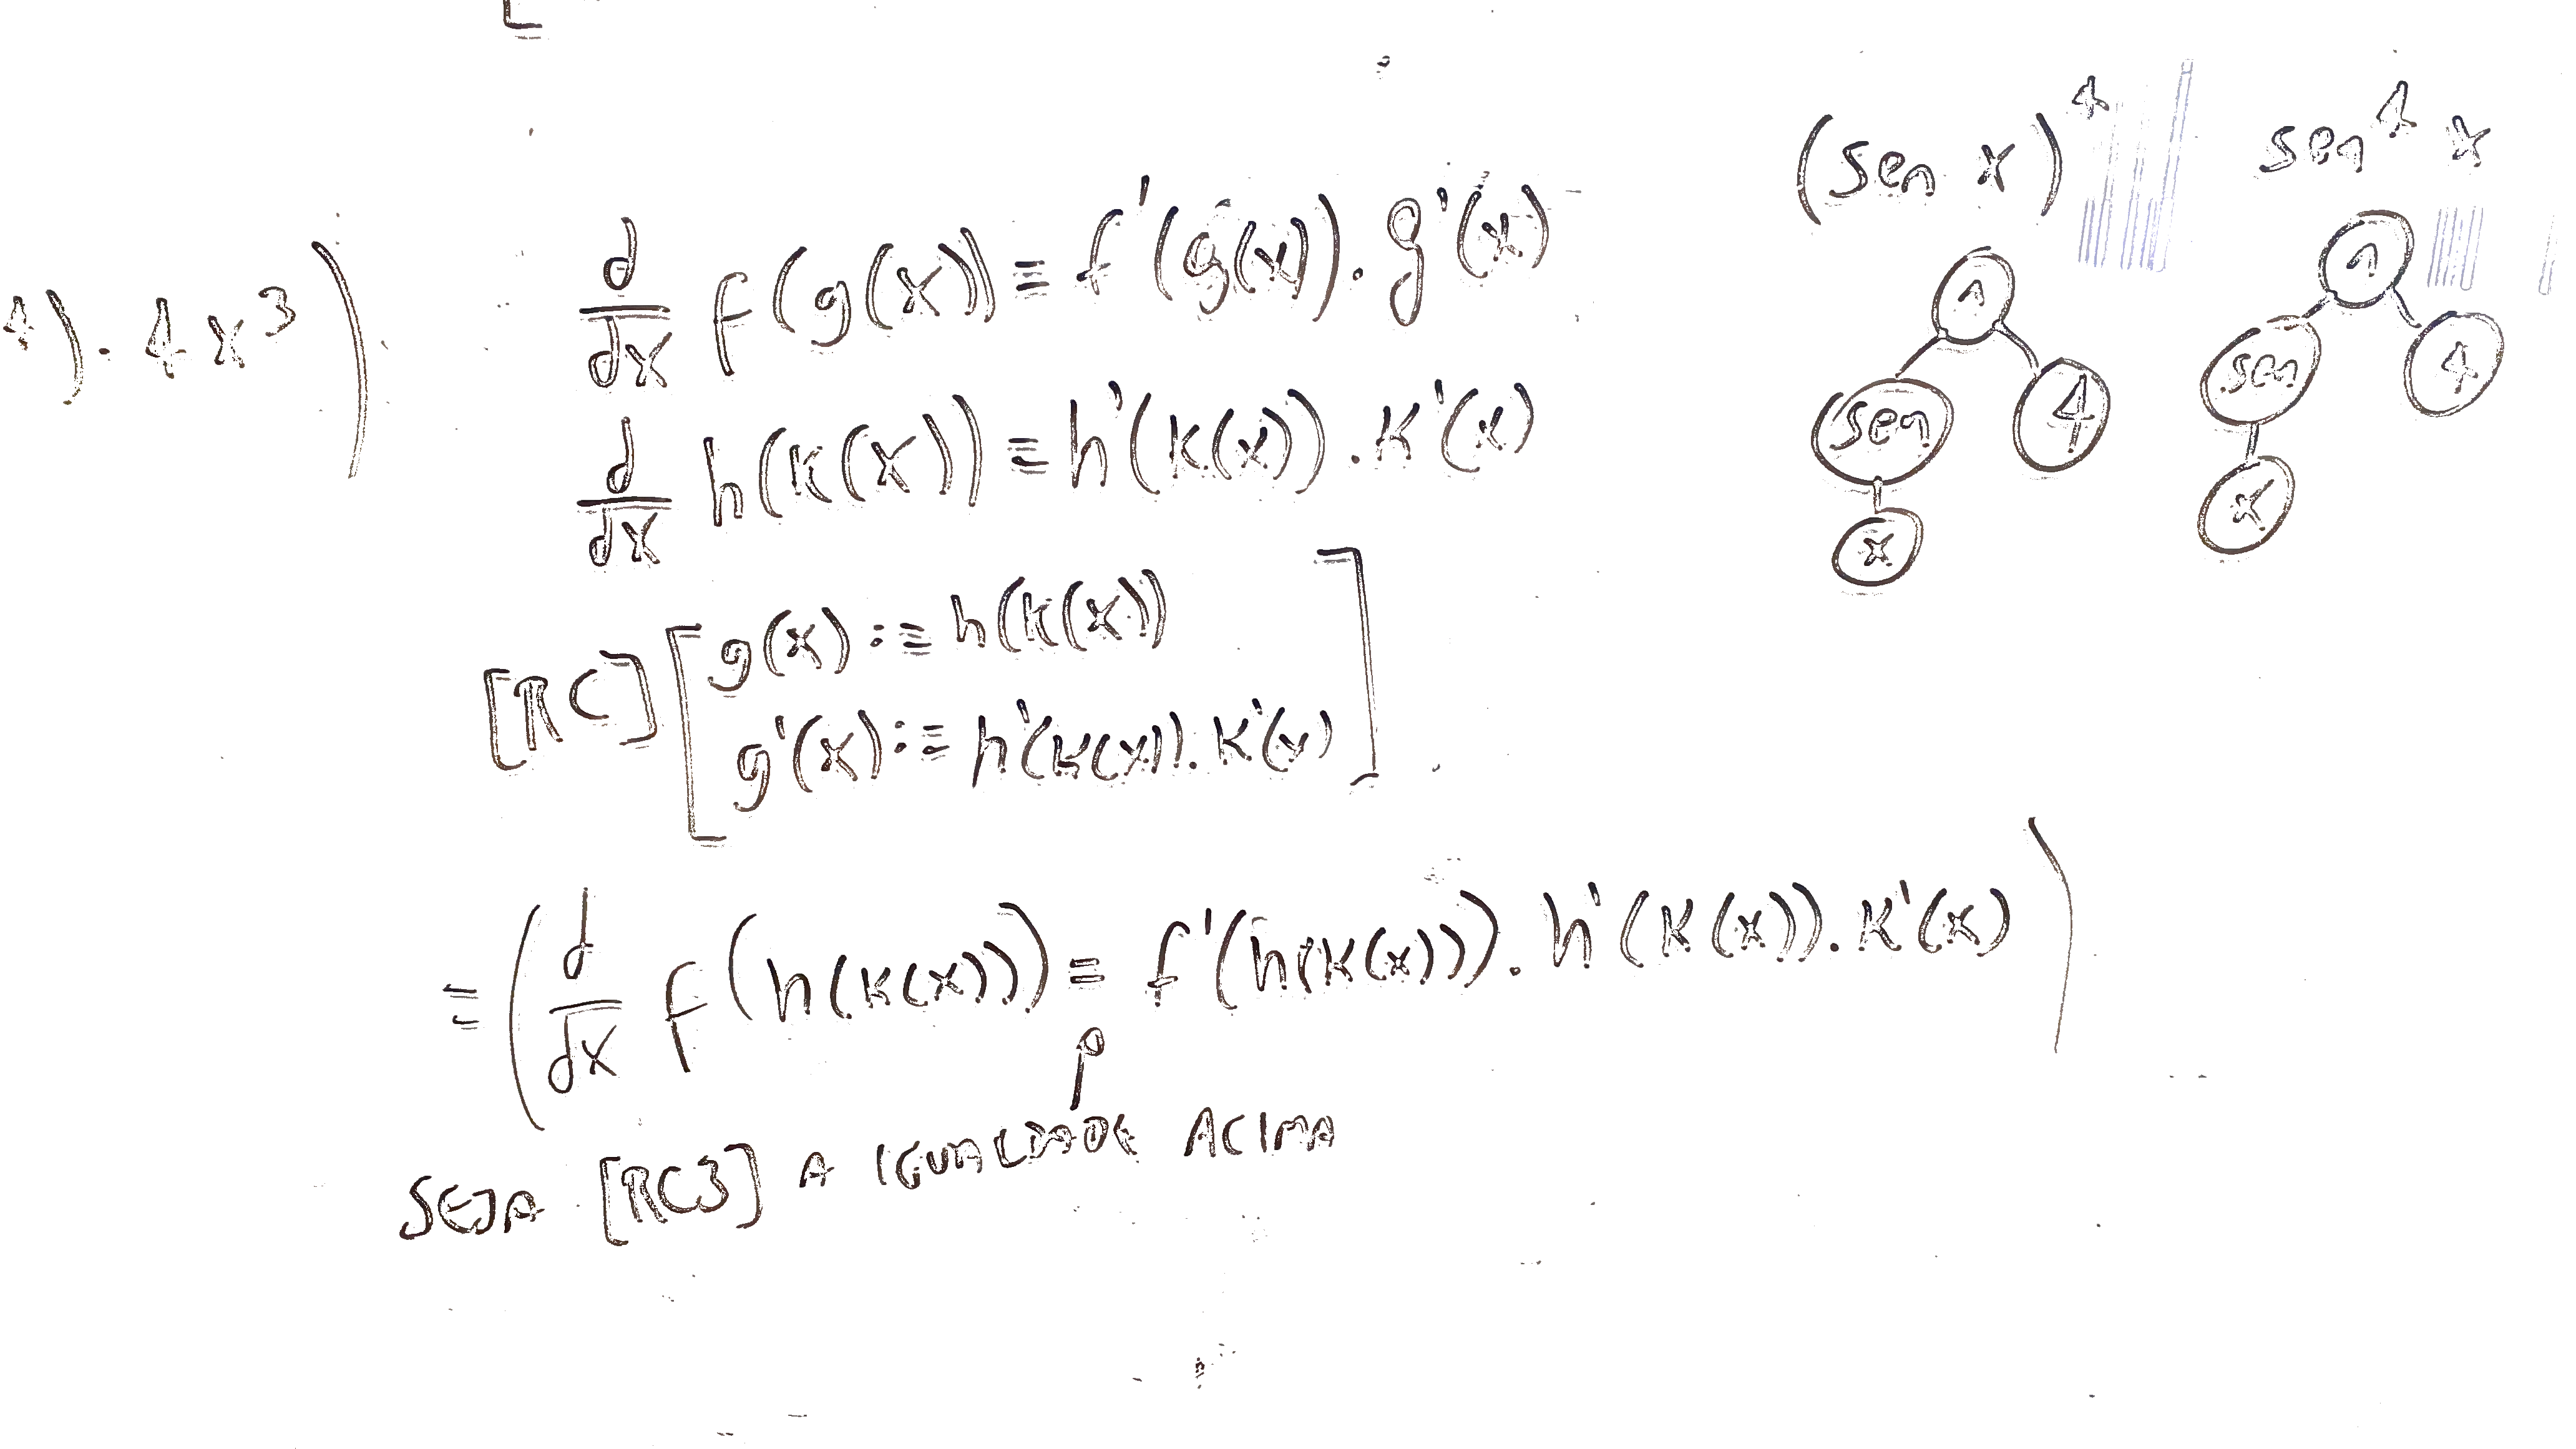 4) · 4x³)
d/dx f(g(x)) = f'(g(x)) · g'(x)
d/dx h(k(x)) = h'(k(x)) · k'(x)
[RC] [g(x) := h(k(x))
g'(x) := h'(k(x)) · k'(x)]
= (d/dx f(h(k(x))) = f'(h(k(x))) · h'(k(x)) · k'(x))
SEJA [RC3] A IGUALDADE ACIMA
(sen x)⁴
^
sen 4
x
sen⁴ x
^
sen 4
x